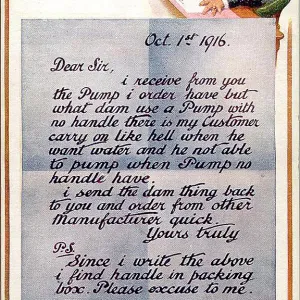 Oct. 1st 1916.
Dear Sir,
i receive from you
the Pump i order have but
what dam use a Pump with
no handle there is my Customer
carry on like hell when he
want water and he not able
to pump when Pump no
handle have.
i send the dam thing back
to you and order from other
Manufacturer quick.
Yours truly
P.S.
Since i write the above
i find handle in packing
box. Please excuse to me.